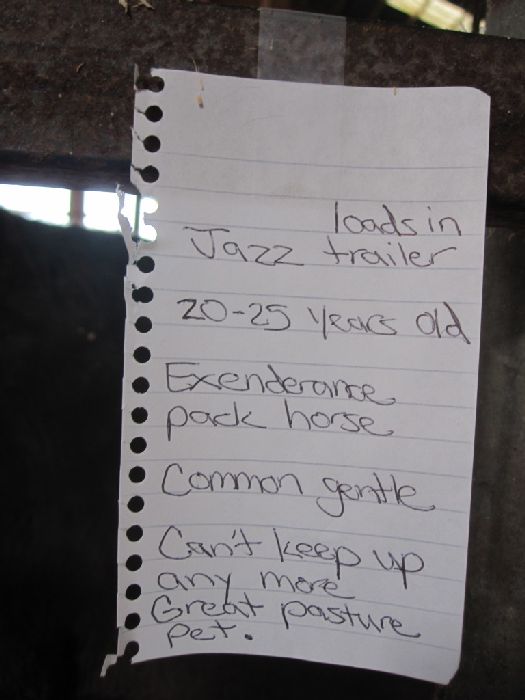 loads in
Jazz trailer
20-25 years old
Exenderance
pack horse
Common gentle
Can't keep up
any more
Great pasture
pet.